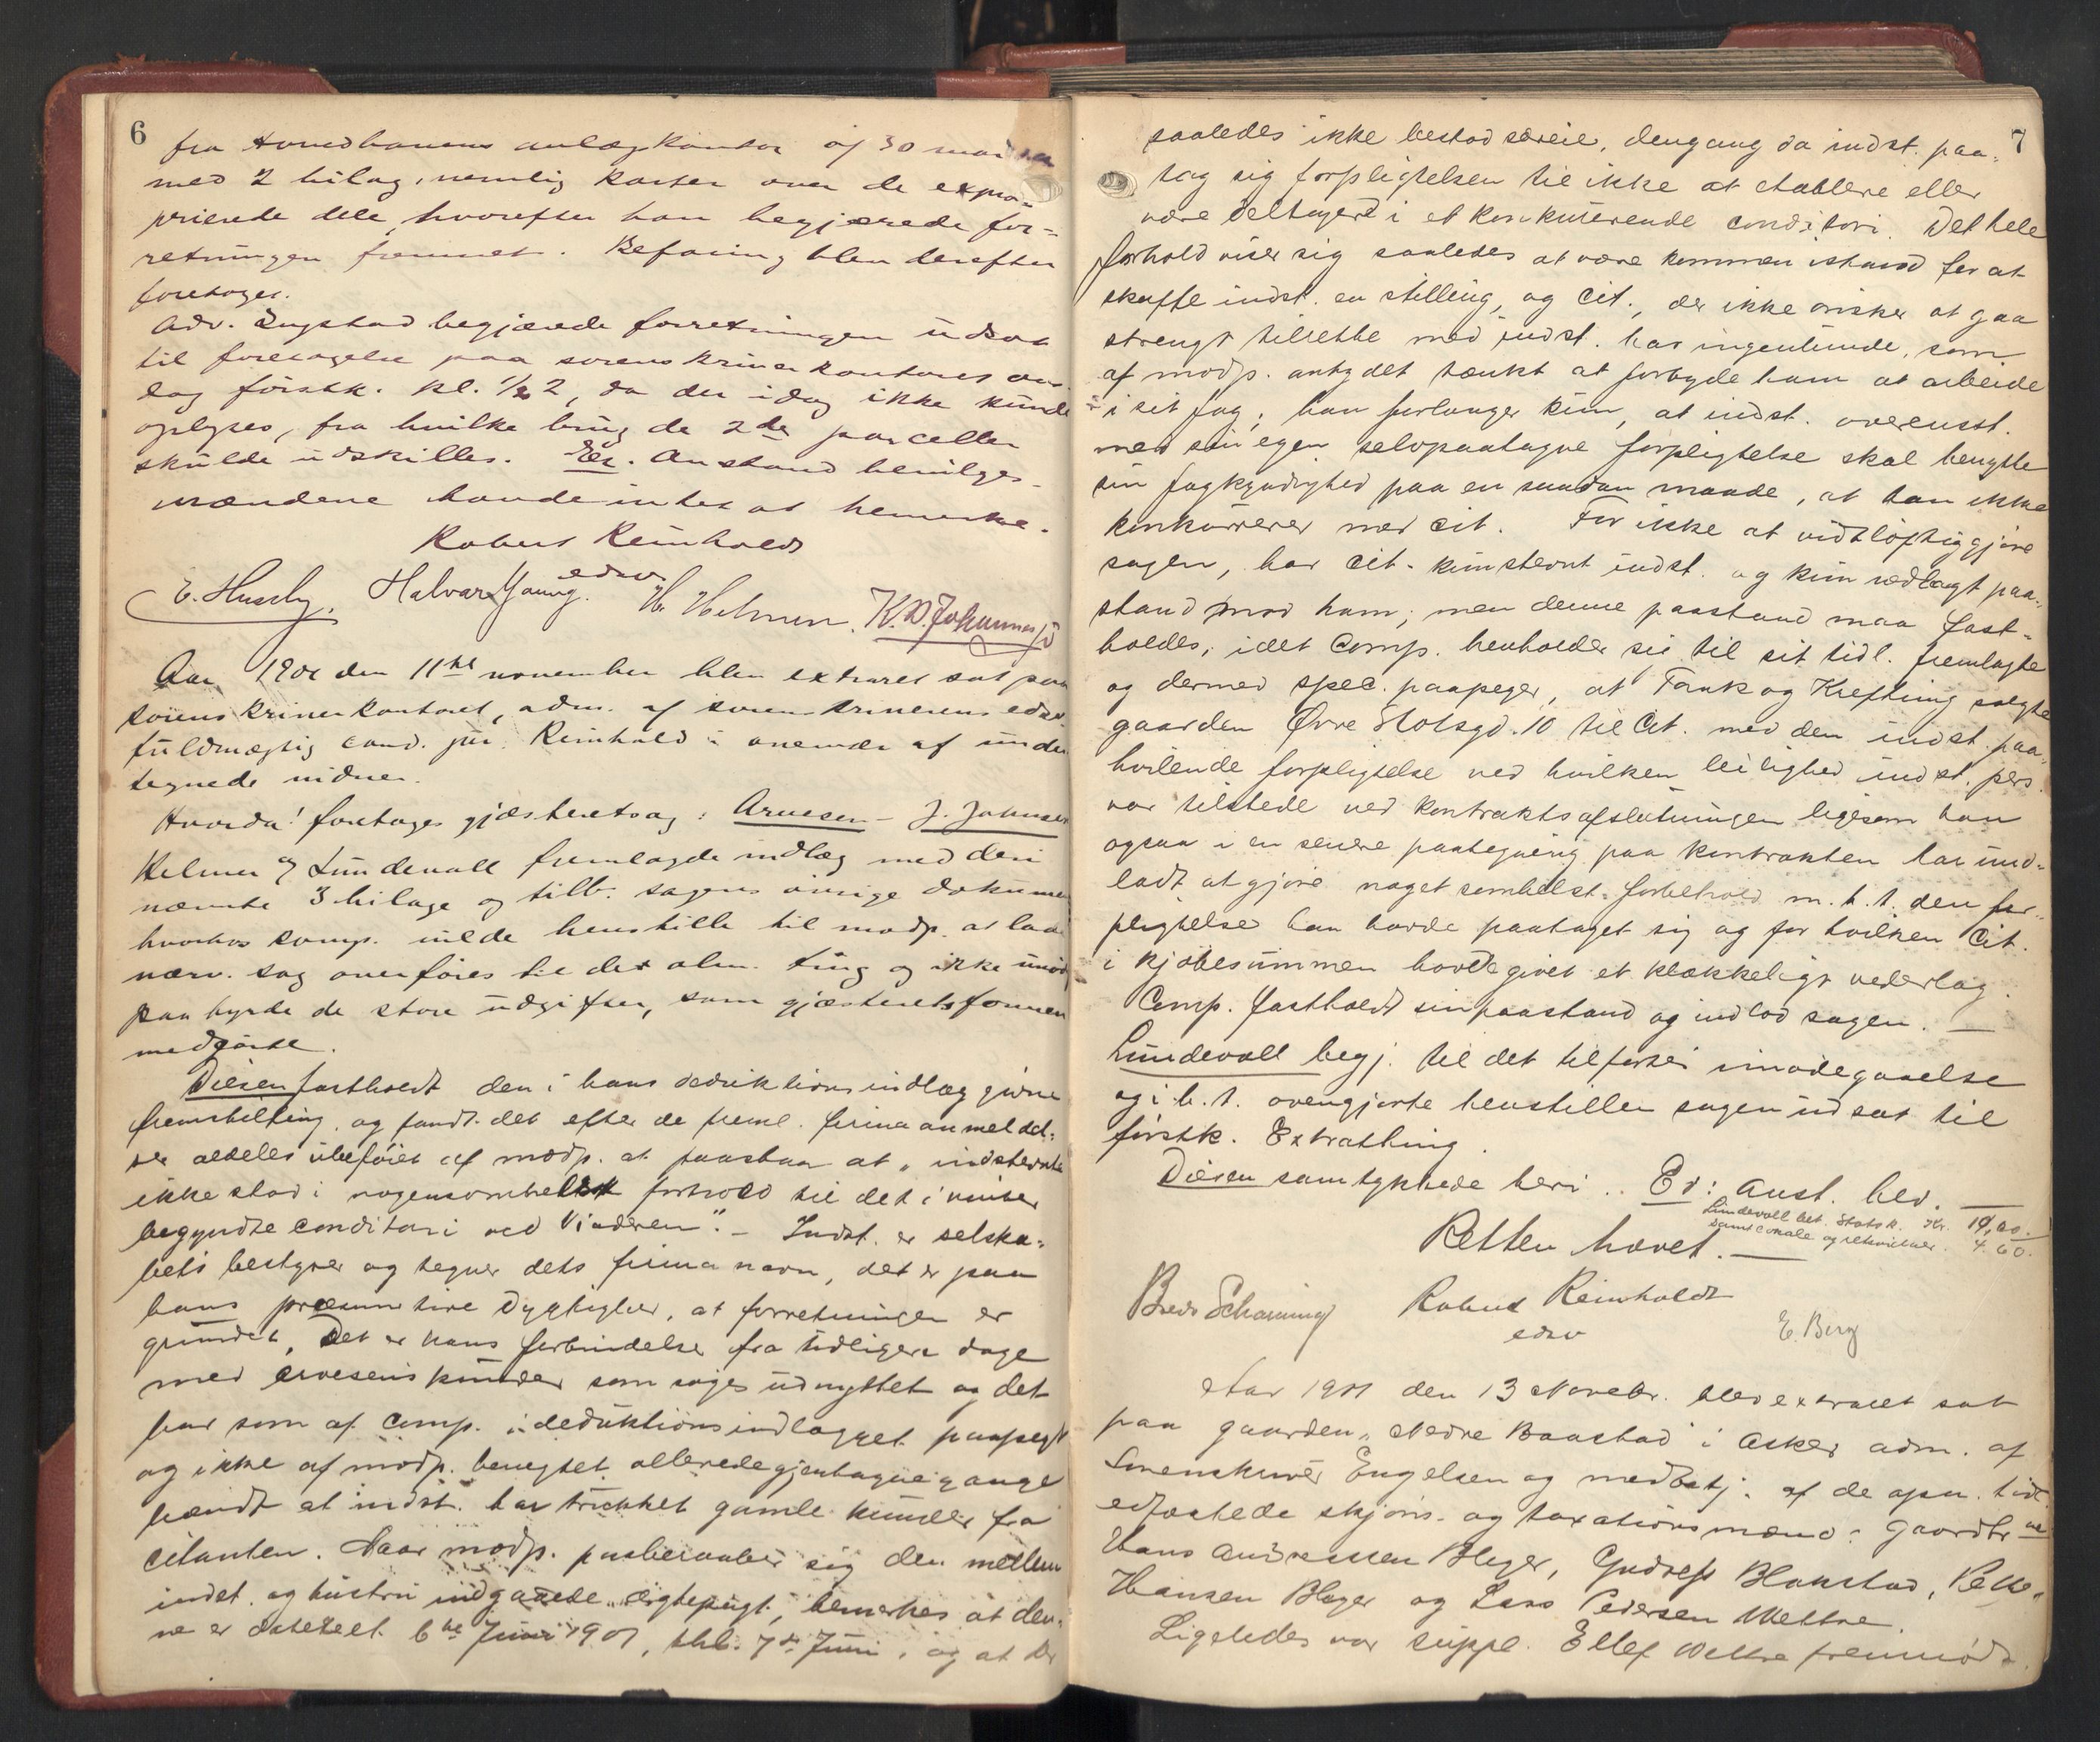 6
fra Hovedbanens anlægskontor af 30 mai d. a.
med 2 bilag, nemlig karter over de expro-
prierede dele, hvorefter han begjærede for-
retningen fremmet. Befaring blev derefter
foretaget.
Adv. Zugstad begjærede forretningen udsat
til foretagelse paa sorenskriverkontoret ons-
dag førstk. kl. 1/2 2, da der idag ikke kunde
oplyses, fra hvilke brug de 2de parceller
skulde udskilles. Er. Anstand bevilges.
mændene havde intet at bemerke.
Robert Reinholdt
edsv.
E. Huseby. Halvard Young. H. Helmen. K. D. Johannes
Aar 1901 den 11te november blev extraret sat paa
sorenskriverkontoret, adm. af sorenskriverens edsv.
fuldmægtig cand. jur. Reinholdt i overvær af under
tegnede vidner.
Hvorda! foretages gjæsteretssag: Arnesen – J. Johnsen
Helmer og Lundevall fremlagde indlæg med deri
nævnte 3 bilage og tilb. sagens øvrige dokumen
hvorhos comp. vilde henstille til modp. at lade
nærv. sag overføres til det alm. ting og ikke unød
paabyrde de store udgifter, som gjæsteretsformen
medførte.
Diesen fastholdt den i hans deduktionsindlæg givne
fremstilling, og fandt det efter de freml. firmaanmeldel-
ser aldeles ubeføiet af modp. at paastaa at „indstevnte
ikke stod i nogensomhelst forhold til det i vinter
begyndte conditori ved Vinderen". – Indst. er selska-
bets bestyrer og tegner dets firmanavn, det er paa
hans præsumtive dygtighed, at forretningen er
grundet, Det er hans forbindelse fra tidligere dage
med Arnesens kunder som søges udnyttet og det
har som af comp. i deduktionsindlægget paapegt
og ikke af modp. benegtet allerede gjentagne gange
hændt at indst. har trukket gamle kunder fra
citanten. Naar modp. paaberaaber sig den mellem
indst. og hustru indgaaede ægtepagt, bemerkes at den-
ne er dateret 6te Juni 1901, thl. 7de Juni, og at der
7
saaledes ikke bestod særeie, dengang da indst. paa-
tag sig forpligtelsen til ikke at etablere eller
være deltagere i et konkurerende conditori. Det hele
forhold viser sig saaledes at være kommen istand for at
skaffe indst. en stilling, og Cit., der ikke ønsker at gaa
strengt tilrette med indst. har ingenlunde, som
af modp. antydet tænkt at forbyde ham at arbeide
i sit fag; han forlanger kun, at indst. overensst.
med sin egen selvpaatagne forpligtelse skal benytte
sin fagkyndighed paa en saadan maade, at han ikke
konkurrerer med cit. For ikke at vidtløftiggjøre
sagen, har cit. kun stevnt indst. og kun nedlagt paa-
stand mod ham; men denne paastand maa fast-
holdes, idet Comp. henholder sig til sit tidl. fremlagte
og dermed spec. paapeger, at Fank og Krefting solgte
gaarden Øvre Slotsgd. 10 til Cit. med den indst. paa-
hvilende forpligtelse ved hvilken leilighed indst. pers.
var tilstede ved kontraktsafslutningen ligesom han
ogsaa i en senere paategning paa kontrakten har und-
ladt at gjøre noget somhelst forbehold m. h. t. den for-
pligtelse han havde paataget sig og for hvilken Cit.
i kjøbesummen havde givet et klækkeligt vederlag.
Comp. fastholdt sin paastand og indlod sagen. —
Lundevall begj. til det tilførtes imødegaaelse
og i h. t. ovengjorte henstillen sagen udsat til
førstk. Extrathing.
Diesen samtykkede heri. Er: Anst. bev. —
Lundevall bet. Statsk. Kr. 19,20.
samt lokale og retsvidner. 4.60.
Retten hævet. —
Brede Schanning Robert Reinholdt
edsv E. Berg
Aar 1901 den 13 Novebr. blev extraret sat
paa gaarden „Nedre Baastad i Asker adm. af
Sorenskriver Engelsen og medbetj. af de opn. tidl.
edfæstede skjøns- og taxationsmænd: Gaardbrne
Hans Andreassen Bleger, Gudref Blakstad, Peder
Hansen Bleger og Lars Pedersen Wettre.
Ligeledes var suppl. Ellef Wettre fremmødt.